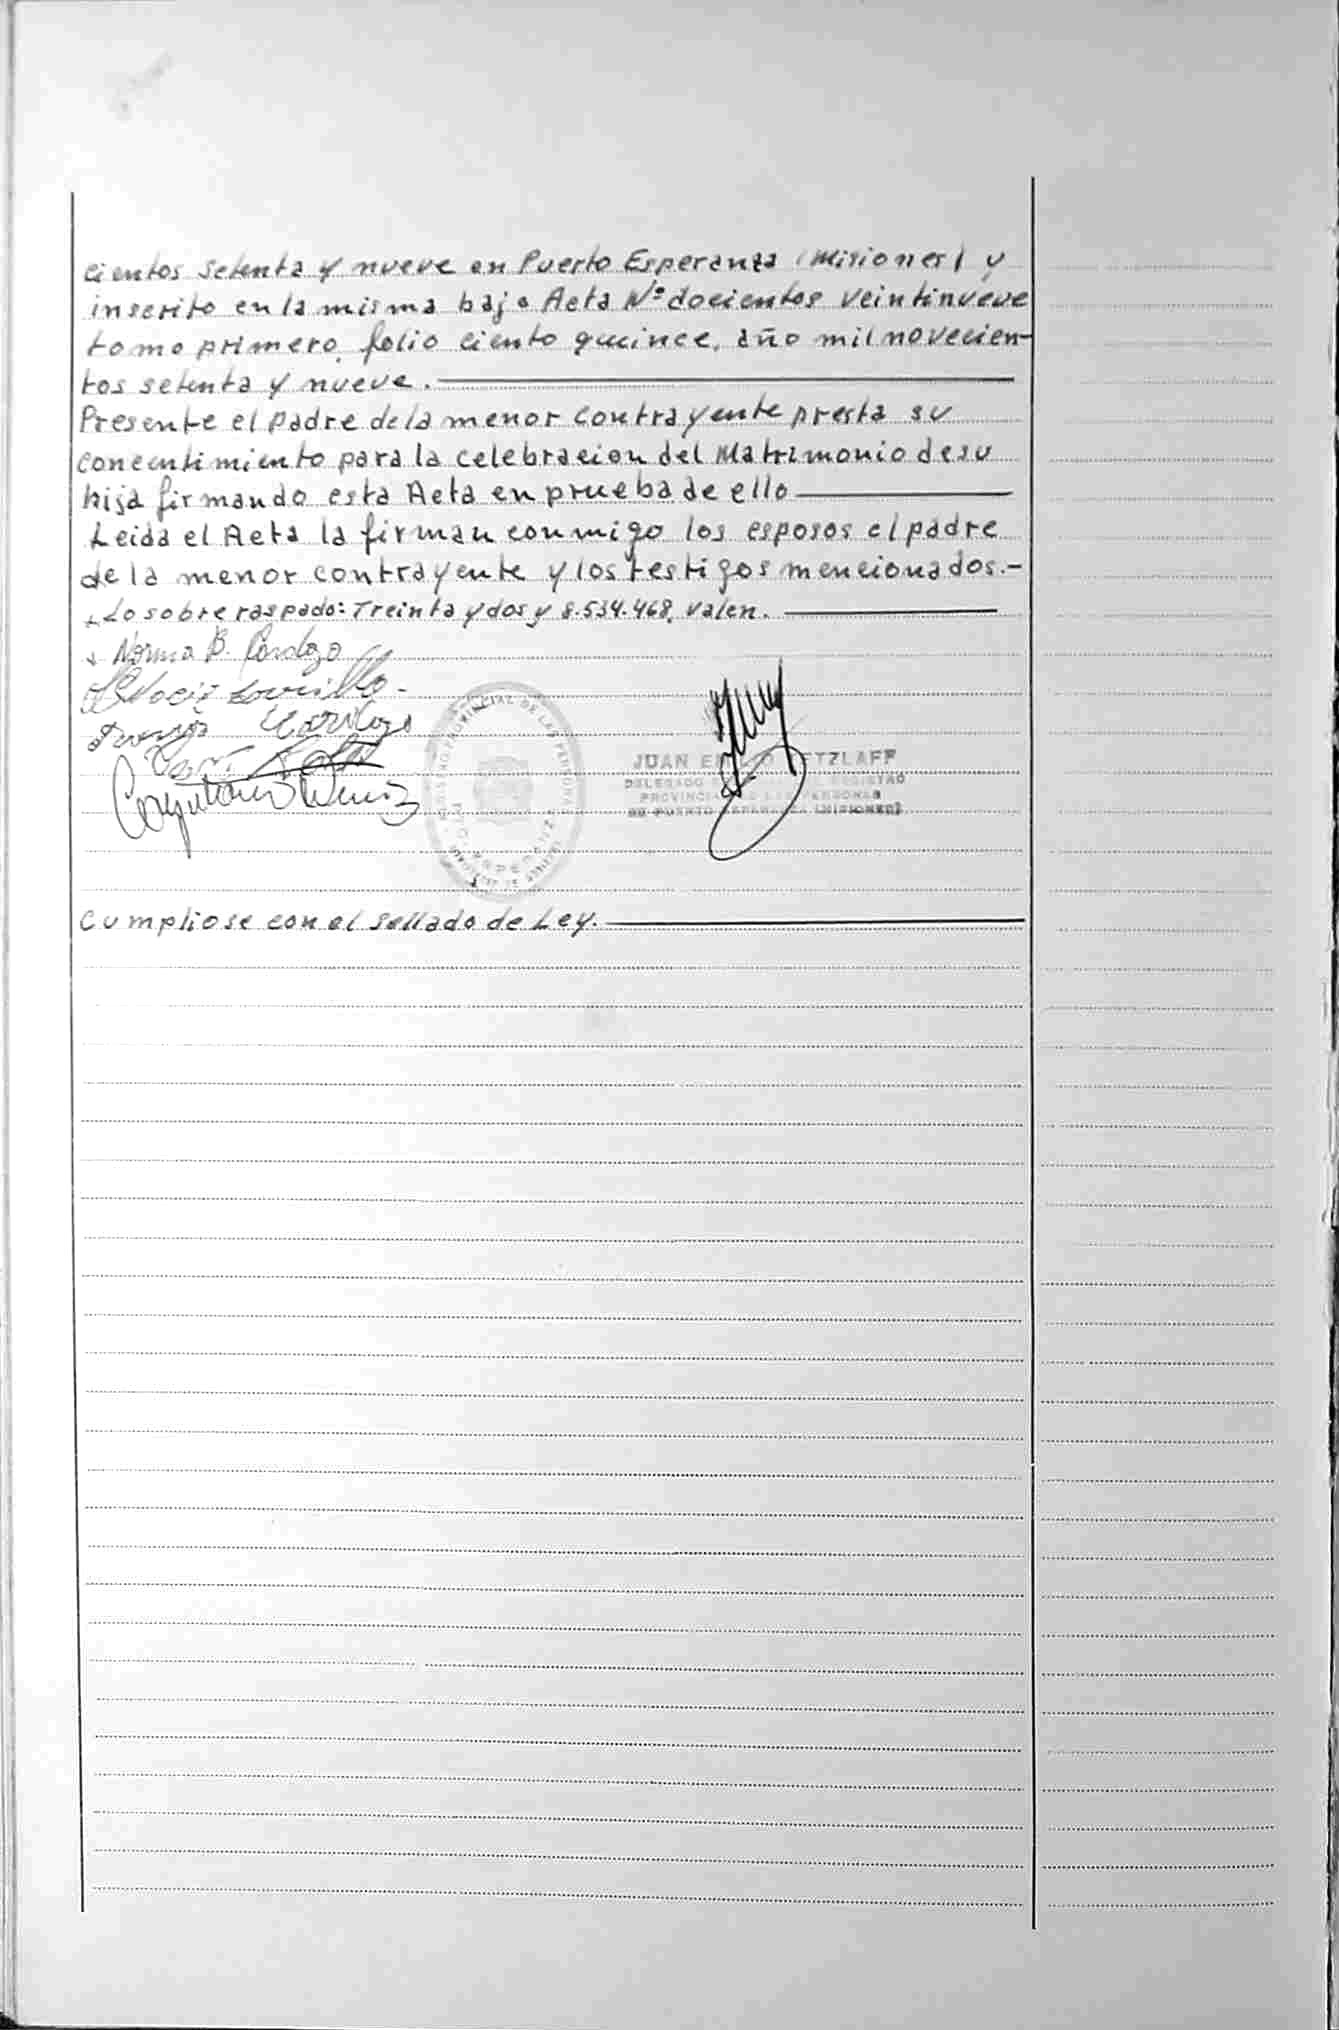 cientos setenta y nueve en Puerto Esperanza (Misiones) y
inscrito en la misma bajo Acta Nº docientos veintinueve
tomo primero, folio ciento quince, año mil novecien-
tos setenta y nueve.
Presente el padre de la menor contrayente presta su
concentimiento para la celebracion del Matrimonio de su
hija firmando esta Acta en prueba de ello
Leida el Acta la firman conmigo los esposos el padre
de la menor contrayente y los testigos mencionados.-
Lo sobre raspado: Treinta y dos y 8.534.468, valen.
Norma B. Cardozo
Cardozo
REGISTRO PROVINCIAL DE LAS PERSONAS
JUAN EMILIO TZLAFF
DELEGADO REGISTRO
PROVINCIAL DE LAS PERSONAS
DE PUERTO ESPERANZA (MISIONES)
Cumpliose con el sellado de Ley.